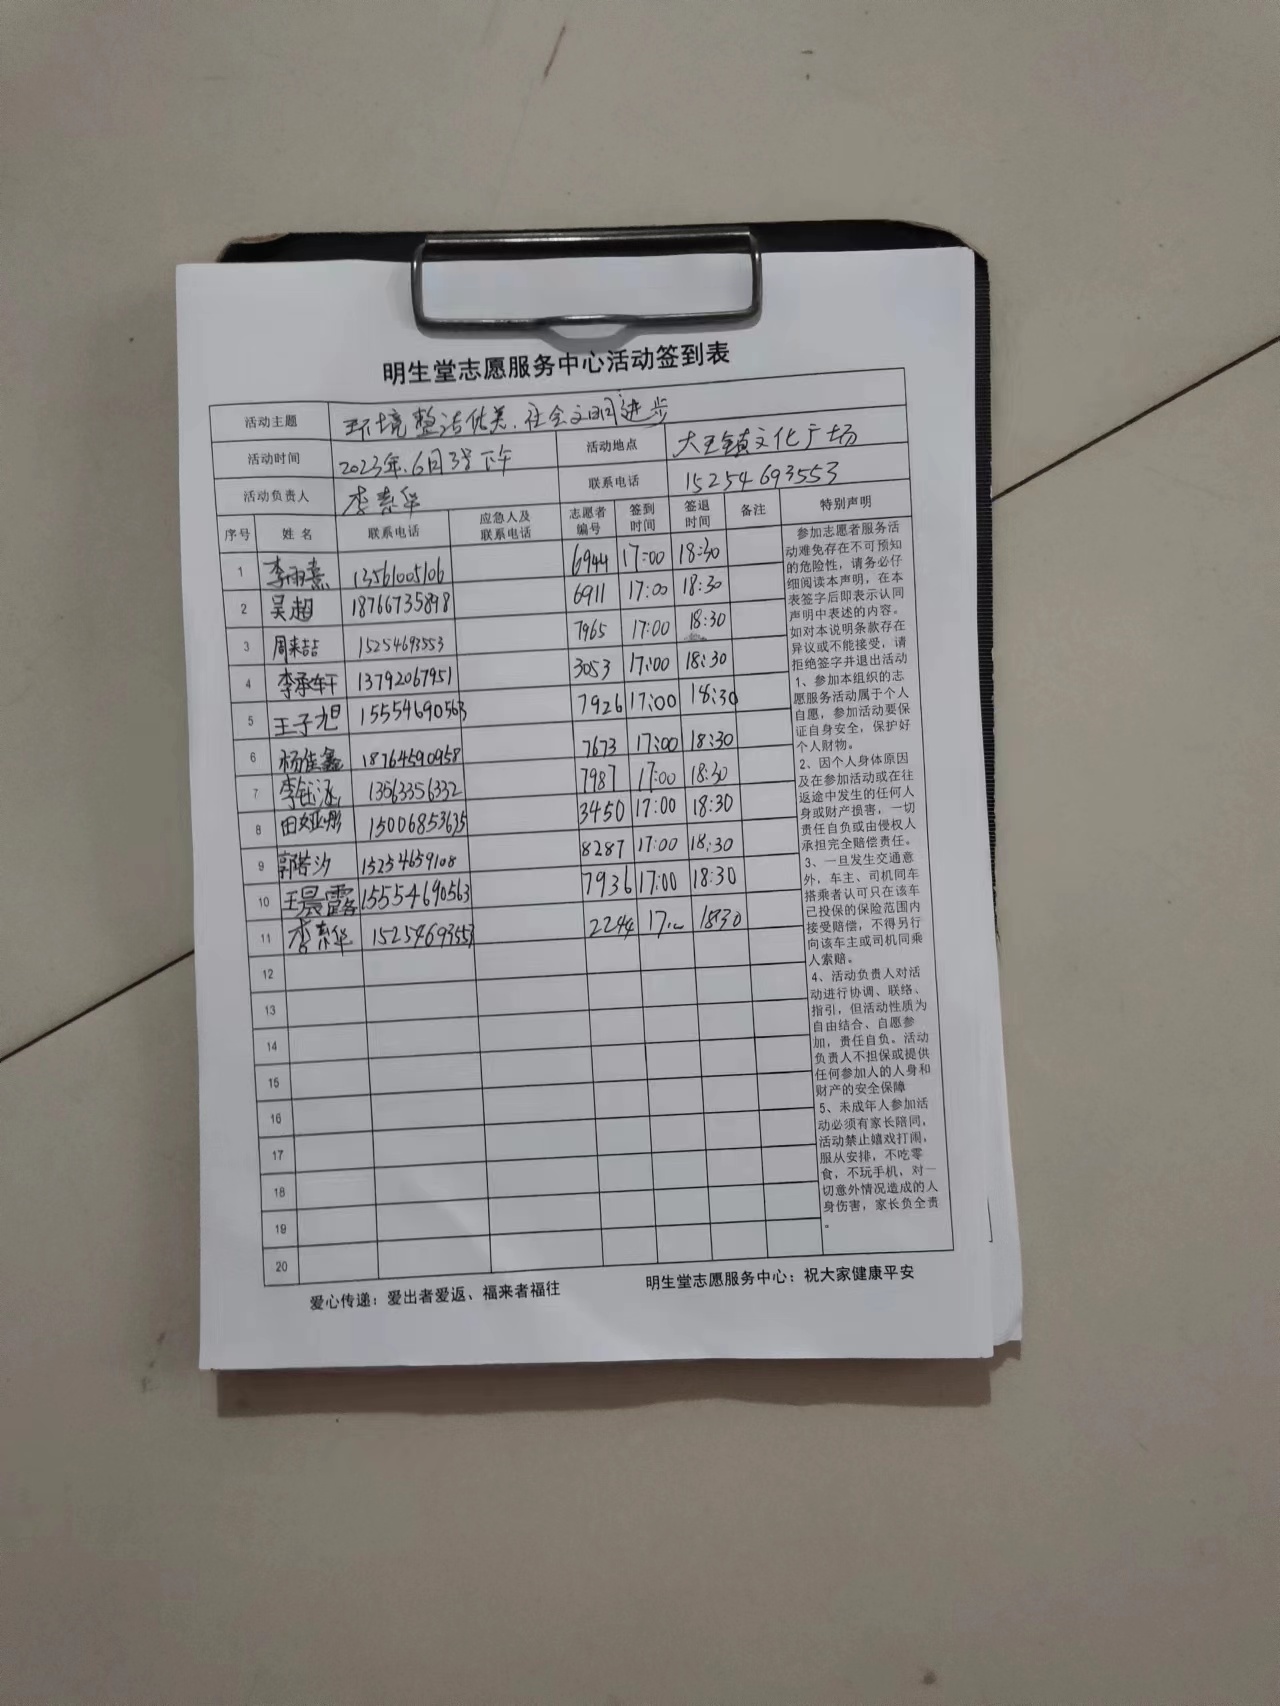 明生堂志愿服务中心活动签到表
活动主题 环境整洁优美、社会文明进步
活动时间 2023年.6月3号下午 活动地点 大王镇文化广场
活动负责人 李素华 联系电话 15254693553
序号 姓名 联系电话 应急人及联系电话 志愿者编号 签到时间 签退时间 备注 特别声明
1 李雨熹 13561005106 6944 17:00 18:30
2 吴超 18766735898 6911 17:00 18:30
3 周来喆 15254693553 7965 17:00 18:30
4 李承轩 13792067951 3053 17:00 18:30
5 王子旭 15554690563 7926 17:00 18:30
6 杨佳鑫 18764590958 7673 17:00 18:30
7 李钰涵 13563356332 7987 17:00 18:30
8 田娅彤 15006853635 3450 17:00 18:30
9 郭若汐 15254659108 8287 17:00 18:30
10 王晨露 15554690563 7936 17:00 18:30
11 李素华 15254693553 2244 18:30
12
13
14
15
16
17
18
19
20
参加志愿者服务活
动难免存在不可预知
的危险性，请务必仔
细阅读本声明，在本
表签字后即表示认同
声明中表述的内容。
如对本说明条款存在
异议或不能接受，请
拒绝签字并退出活动
1、参加本组织的志
愿服务活动属于个人
自愿，参加活动要保
证自身安全，保护好
个人财物。
2、因个人身体原因
及在参加活动或在往
返途中发生的任何人
身或财产损害，一切
责任自负或由侵权人
承担完全赔偿责任。
3、一旦发生交通意
外，车主、司机同车
搭乘者认可只在该车
已投保的保险范围内
接受赔偿，不得另行
向该车主或司机同乘
人索赔。
4、活动负责人对活
动进行协调、联络、
指引，但活动性质为
自由结合、自愿参
加，责任自负。活动
负责人不担保或提供
任何参加人的人身和
财产的安全保障
5、未成年人参加活
动必须有家长陪同，
活动禁止嬉戏打闹，
服从安排，不吃零
食，不玩手机，对一
切意外情况造成的人
身伤害，家长负全责
。
爱心传递：爱出者爱返、福来者福往 明生堂志愿服务中心：祝大家健康平安